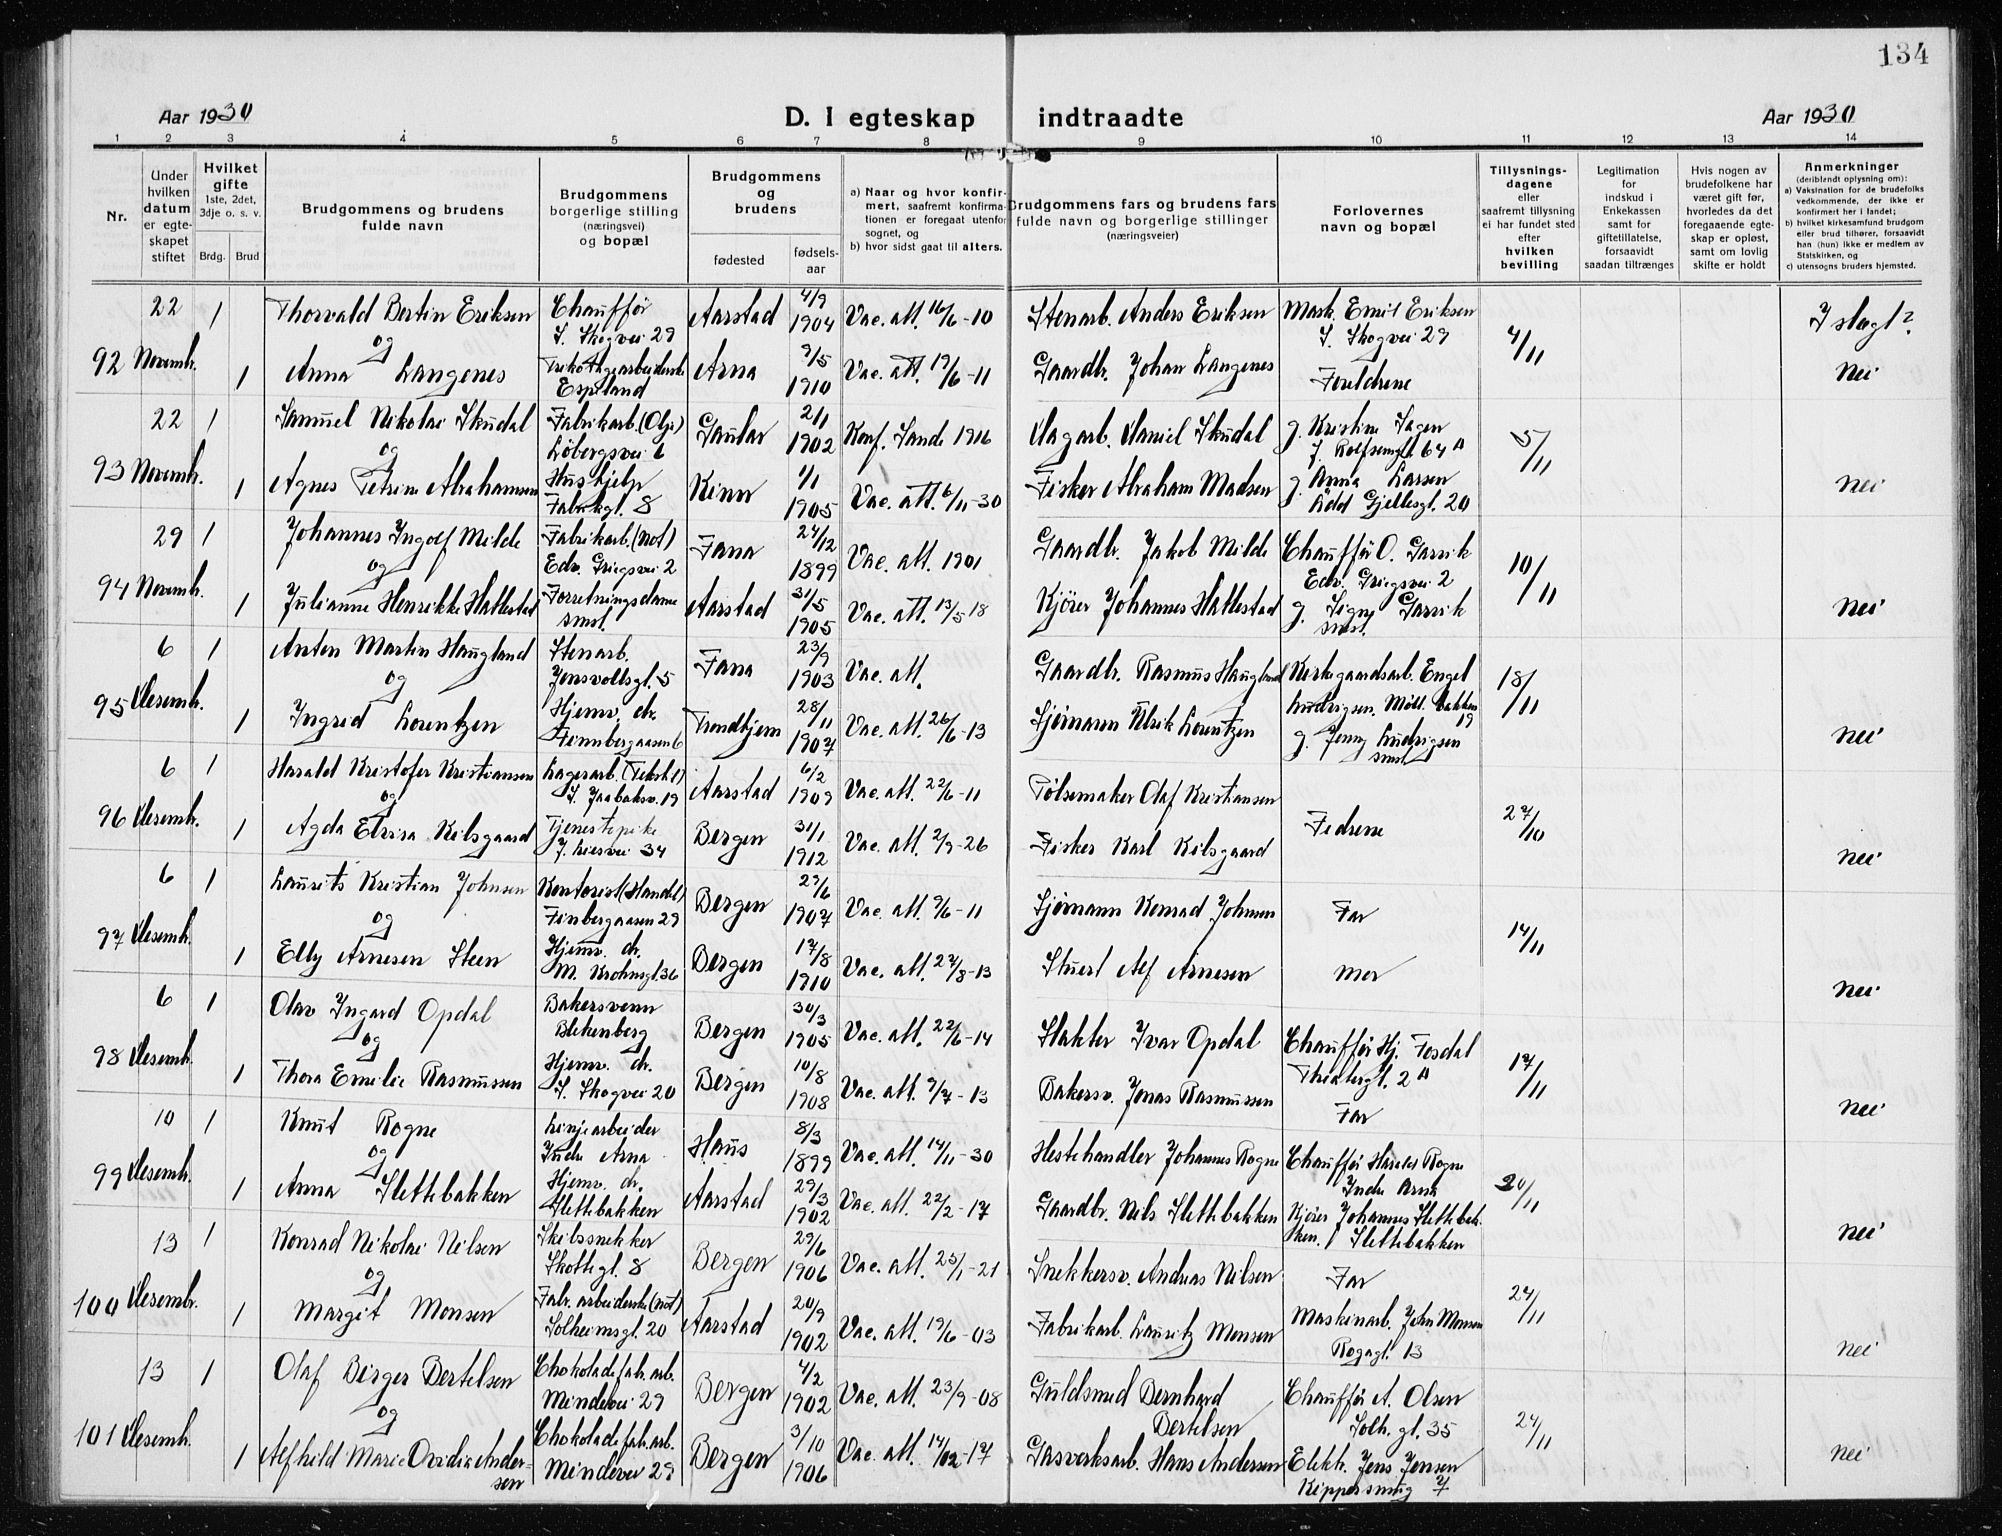 134
Aar 1930 D. I egteskap indtraadte Aar 1930
1 2 3 4 5 6 7 8 9 10 11 12 13 14
Nr.
Under hvilken datum er egteskapet stiftet
Hvilket gifte 1ste, 2det, 3dje o. s. v.
Brdg. Brud
Brudgommens og brudens fulde navn
Brudgommens borgerlige stilling (næringsvei) og bopæl
Brudgommens og brudens
fødested fødselsaar
a) Naar og hvor konfirmert, saafremt konfirmationen er foregaat utenfor sognet, og
b) hvor sidst gaat til alters.
Brudgommens fars og brudens fars fulde navn og borgerlige stillinger (næringsveier)
Forlovernes navn og bopæl
Tillysningsdagene eller saafremt tillysning ei har fundet sted efter hvilken bevilling
Legitimation for indskud i Enkekassen samt for giftetillatelse, forsaavidt saadan tiltrænges
Hvis nogen av brudefolkene har været gift før, hvorledes da det foregaaende egteskap er opløst, samt om lovlig skifte er holdt
Anmerkninger (deriblandt oplysning om):
a) Vaksination for de brudefolks vedkommende, der ikke er konfirmert her i landet;
b) hvilket kirkesamfund brudgom eller brud tilhører, forsaavidt han (hun) ikke er medlem av Statskirken, og
c) utensogns bruders hjemsted.
22 1 Thorvald Bertin Eriksen Chauffør Aarstad 4/9 1904 Vac. att. 16/6-10 Stenarb. Anders Eriksen Mask. Emil Eriksen I slegt?
og S. Skogvei 29 S. Skogvei 29 4/11
92 Novembr. 1 Anna Langenes Trikotagearbeiderske Arna 9/5 1910 Vac. att. 19/6-11 Gaardbr. Johan Langenes Foreldrene Nei
Espeland
22 1 Samuel Nikolai Skudal Fabrikarb. (Olje) Gaular 2/1 1902 Konf. Sande 1916 Dagarb. Daniel Skudal g. Kristine Sagen
og Løbergsvei 6 J. Rolfsensgt. 64 A 5/11
93 Novembr. 1 Agnes Petrine Abrahamsen Hushjelp Kinn 1/1 1905 Vac. att. 6/11-30 Fisker Abraham Madsen g. Anna Larsen nei
Fabrikgt. 8 Odd Gjellesgt. 20
29 1 Johannes Ingolf Milde Fabrikarb. (not) Fana 24/12 1899 Vac. att. 1901 Gaardbr. Jakob Milde Chauffør O. Garvik
og Edv. Griegsvei 2 Edv. Griegsvei 2 10/11
94 Novembr. 1 Julianne Henrikke Hatlestad Forretningsdame Aarstad 31/5 1905 Vac. att. 13/5 18 Kjører Johannes Hatlestad g. Signy Garvik nei
smst. smst.
6 1 Anton Martin Haugland Stenarb. Fana 23/9 1903 Vac. att. Gaardbr. Rasmus Haugland Kirkegaardsarb. Engel
og Jonsvollsgt. 5 Ludvigsen. Møll. bakken 19 18/11
95 Desemb. 1 Ingrid Lorentzen Hjemv. dr. Trondhjem 28/11 1907 Vac. att. 26/6-13 Sjømann Ulrik Lorentzen g. Jenny Ludvigsen nei
Finnbergaasen 6 smst.
6 1 Harald Kristofer Kristiansen Lagerarb. (Tekstil) Aarstad 6/2 1909 Vac. att. 22/6-11 Pølsemaker Olaf Kristiansen
og 19 Fedrene 27/10
96 Desembr. 1 Agda Elvira Kilsgaard Tjenestepike Bergen 31/1 1912 Vac. att. 2/9-26 Fisker Karl Kilsgaard nei
J. Liesvei 34
6 1 Laurits Kristian Johnsen Kontorist (Handel) Bergen 29/6 1907 Vac. att. 9/6-11 Sjømann Konrad Johnsen Far
og Finbergaasen 29 14/11
97 Desemb. 1 Elly Arnesen Steen Hjemv. dr. Bergen 17/8 1910 Vac. att. 27/8-13 Stuert Alf Arnesen mor nei
M. Krohnsgt. 36
6 1 Olav Ingard Opdal Bakersvenn Bergen 30/3 1905 Vac. att. 22/6-14 Slakter Ivar Opdal Chauffør Hj. Fosdal
og Blekenberg Theatergt. 2 A 17/11
98 Desemb. 1 Thora Emilie Rasmussen Hjemv. dr. Bergen 10/8 1908 Vac. att. 9/7-13 Bakersv. Jonas Rasmussen Far nei
S. Skogvei 20
10 1 Knut Rogne Linjearbeider Haus 8/3 1899 Vac. att. 14/11-30 Hestehandler Johannes Rogne Chauffør Harald Rogne
og Indre Arna Indre Arna 20/11
99 Desemb. 1 Anna Slettebakken Hjemv. dr. Aarstad 29/3 1902 Vac. att. 22/2-17 Gaardbr. Nils Slettebakken Kjører Johannes Slettebakken. nei
Slettebakken Slettebakken
13 1 Konrad Nikolai Nilsen Skibssnekker Bergen 29/6 1906 Vac. att. 25/1-21 Snekkersv. Andreas Nilsen Far
og Skottegt. 8 24/11
100 Desembr. 1 Margit Monsen Fabr. arbeiderske (not) Aarstad 20/9 1902 Vac. att. 19/6-03 Fabrikarb. Lauritz Monsen Maskinarb. John Monsen nei
Solheimsgt. 20 Rogagt. 13
13 1 Olaf Birger Bertelsen Chokoladefabr. arb. Bergen 4/2 1902 Vac. att. 23/9-08 Guldsmed Bernhard Bertelsen Chauffør A. Olsen
og Mindevei 29 Solh. gt. 35 24/11
101 Desemb. 1 Alfhild Marie Ovidia Andersen Chokoladefabr. arb. Bergen 3/10 1906 Vac. att. 14/02-17 Gasverksarb. Hans Andersen Elektr. Jens Jensen nei
Mindevei 29 Kippersmug 7